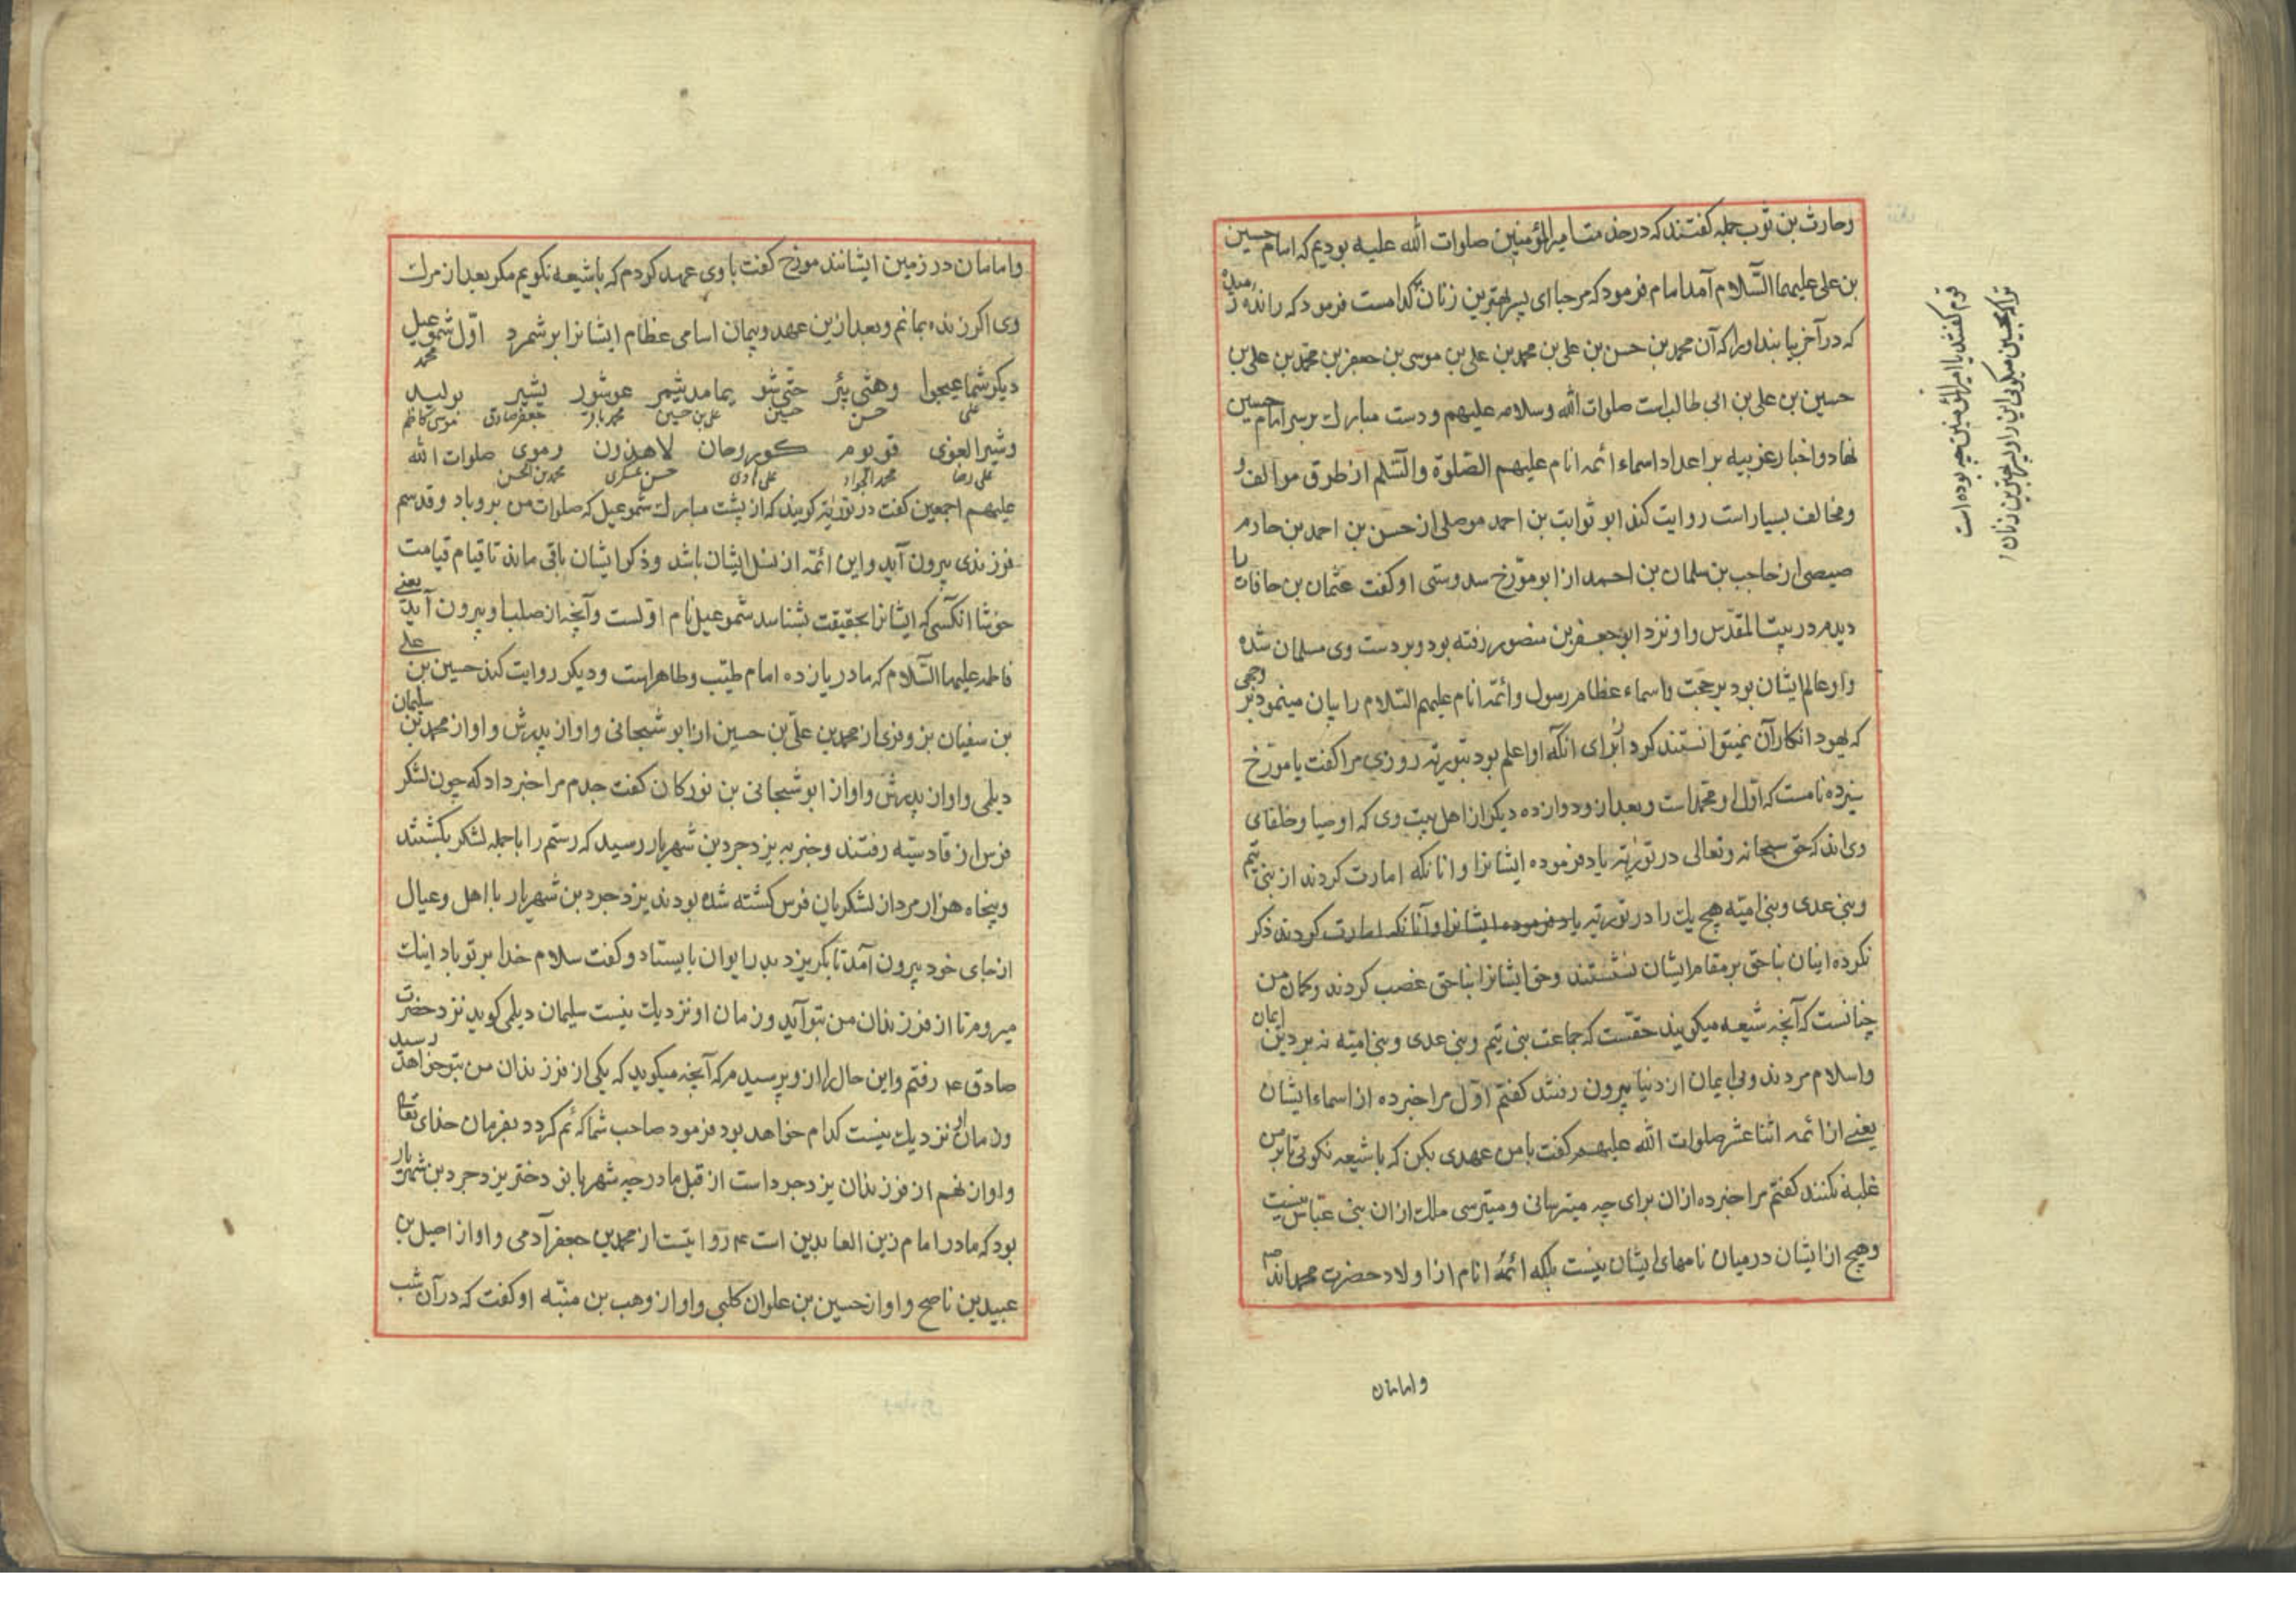 وحارث بن ثوب جمله کفتند که در خدمت امیرالمؤمنین صلوات الله علیه بودیم که امام حسین
بن علی علیهما السّلام آمد امام فرمود که مرحبا ای پسر بهترین زنان کدامست فرمود که رانده
که در آخر بیابند او را که آن محمد بن حسن بن علی بن محمد بن علی بن موسی بن جعفر بن محمد بن علی بن
حسین بن علی بن ابی طالب است صلوات الله وسلامه علیهم ودست مبارک بر سر امام حسین
نهاد واخبار غریبه بر اعداد اسماء ائمه انام علیهم الصّلوة والسّلم از طرق موالف و
ومخالف بسیار است روایت کند ابو ثوابت بن احمد موصلی از حسن بن احمد بن حازم
صیصی از حاجب بن سلمان بن احمد از ابو مورّخ سدوسی او کفت عثمان بن حافات را
دیدم در بیت المقدس واو نزد ابو جعفر بن منصور رفته بود وبر دست وی مسلمان شده
واو عالم ایشان بود بر حجت واسماء عظام رسول وائمّه انام علیهم السّلام را بیان مینمود بر وجهی
که یهود انکار آن نمیتوانستند کرد از برای آنکه او اعلم بود بتوریة روزی مرا کفت یا مورّخ
سیزده نامست که اوّل او محمد است وبعد از و دوازده دیکر از اهل بیت وی که اوصیا وخلفای
وی اند که حق سبحانه وتعالی در توریة یاد فرموده ایشانرا وانانکه امارت کردند از بنی تیم
وبنی عدی وبنی امیّه هیچ یک را در توریة یاد فرموده ایشانرا وآنانکه امارت کردند ذکر
نکرده اینان بناحق بر مقام ایشان نشستند وحق ایشانرا بناحق غصب کردند وکمان من
چنانست که آنچه شیعه میکویند حقّست که جماعت بنی تیم وبنی عدی وبنی امیّه نه بر دین ایمان
واسلام مردند وبی ایمان از دنیا بیرون رفتند کفتم اوّل مرا خبر ده از اسماء ایشان
یعنی از ائمه اثنا عشر صلوات الله علیهم کفت با من عهدی بکن که با شیعه نکوئی تا بر من
غلبه نکنند کفتم مرا خبر ده از ان برای چه میترسانی ومیترسی ملک از ان بنی عباس نیست
وهیچ از ایشان در میان نامهای ایشان نیست بلکه ائمّهٔ انام از اولاد حضرت محمداند ص
وامامان
قوم کفتند یا امیرالمؤمنین چه بوده است
تو که بحسین میکوئی این را و پسر بهترین زنان
وامامان در زمین ایشانند مورّخ کفت با وی عهد کردم که با شیعه نکویم مکر بعد از مرک
وی اکر زنده بمانم وبعد از ین عهد وپیمان اسامی عظام ایشانرا بر شمرد اوّل شموعیل
محمد
دیکر شماعیحوا وهشی پئر حتّی شو یمامدیثمر عوشور یشیر بولید
علی حسن حسین علی بن حسین محمد باقر جعفر صادق موسی کاظم
وشیرالعوی قوبوم کوروحان لاهدون وموی صلوات الله
علی رضا محمد الجواد علی هادی حسن عسکری محمد بن الحسن
علیهم اجمعین کفت در توریة کویند که از پشت مبارک شموعیل که صلوات من برو باد وقدسم
فرزندی بیرون آید واین ائمّه از نسل ایشان باشد وذکر ایشان باقی ماند تا قیام قیامت
خوشا انکسی که ایشانرا بحقیقت بشناسد شموعیل نام اوّلست وآنچه از صلب او بیرون آید یعنی
فاطمه علیها السّلام که مادر یازده امام طیّب وطاهراست ودیکر روایت کند حسین بن علی
بن سفیان بزوفری از محمد بن علی بن حسین از ابو شبحانی واو از پدرش واو از محمد بن سلیمان
دیلمی واو از پدرش واو از ابو شبحانی بن نورکان کفت جدم مرا خبر داد که چون لشکر
فرس از قادسیّه رفتند وخبر به یزدجرد بن شهریار رسید که رستم را با جمله لشکر بکشتند
وپنجاه هزار مرد از لشکریان فرس کشته شده بودند یزدجرد بن شهریار با اهل وعیال
از جای خود بیرون آمد تا بکریزد بدر ایوان بایستاد وکفت سلام خدا بر تو باد اینک
میروم تا از فرزندان من بتو آید وزمان او نزدیک نیست سلیمان دیلمی کوید نزد حضرت
صادق ع رفتم واین حال را از و پرسیدم که آنچه میکوید که یکی از فرزندان من بتو خواهد رسید
وزمان او نزدیک نیست کدام خواهد بود فرمود صاحب شما که قم کردد بفرمان خدای تعالی
واو از نهم از فرزندان یزدجرد است از قبل مادر چه شهربانو دختر یزدجرد بن شهریار
بود که مادر امام زین العابدین است ع روایتست از محمد بن جعفر آدمی واو از اصیل بن
عبید بن ناصح واو از حسین بن علوان کلبی واو از وهب بن منبّه او کفت که در آن شب